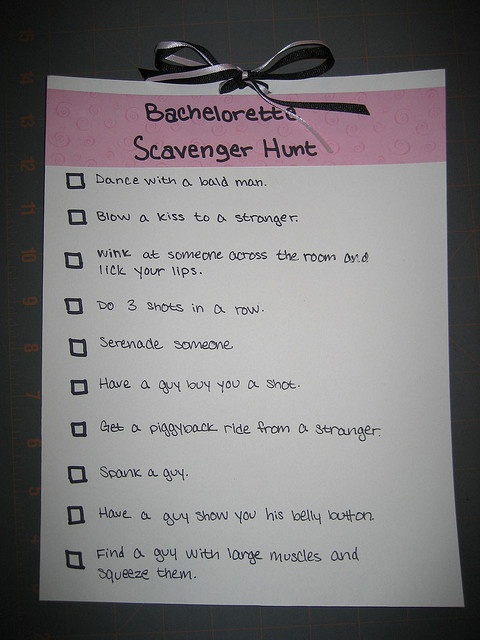 Bachelorette
Scavenger Hunt
Dance with a bald man.
Blow a kiss to a stranger.
Wink at someone across the room and
lick your lips.
Do 3 shots in a row.
Serenade someone
Have a guy buy you a shot.
Get a piggyback ride from a stranger.
Spank a guy.
Have a guy show you his belly button.
Find a guy with large muscles and
squeeze them.
15
14
13
12
11
10
9
8
7
6
5
4